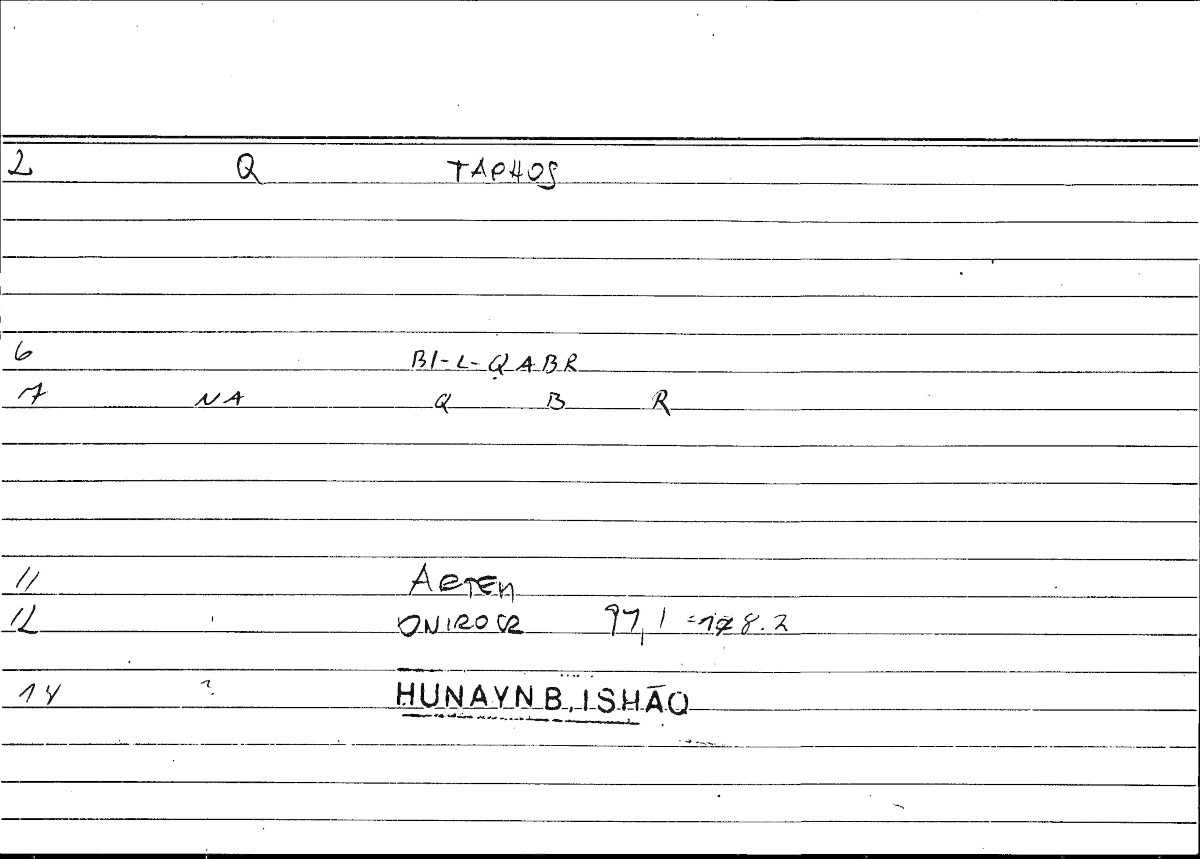 2 Q TAPHOS
6 BI-L-QABR
7 NA Q B R
11 ARTEM
12 ONIROCR 97,1 = 178.2
14 HUNAYN B. ISHĀQ